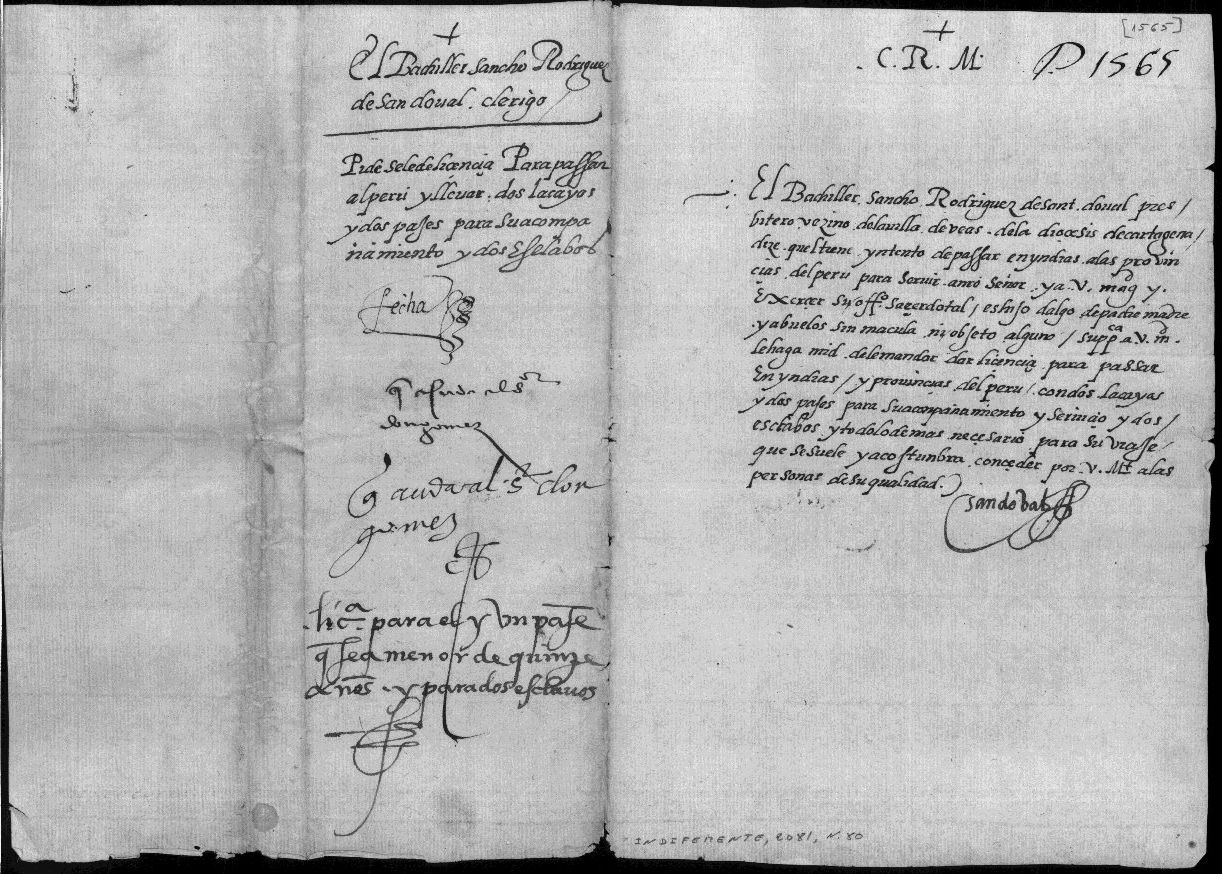 +
El Bachiller Sancho Rodriguez
de Sandoual. clerigo
Pide se le de licencia Para passar
al peru y lleuar. dos lacayos
y dos pajes para su acompa
ñamiento y dos Esclabos
fecha
al s.or
don gomez
q acuda al s.r don
gomez
lic.a para el y vn paje
q sea menor de quinze
años. y para dos esclauos
[1565]
+
. C. R. M. P 1565
El Bachiller Sancho Rodriguez de Sant. doual pres /
bitero vezino dela uilla de veas. dela diocesis de cartagena /
dize. quel tiene yntento de passar en yndias. alas prouin
cias. del peru para seruir. a nro Señor. y a V. mag.d y.
Exercer su off.o sacerdotal / es hijo dalgo de padre madre
y abuelos sin macula ni objeto alguno / supp.ca a V. m.d
le haga mrd. dele mandar dar licencia para passar
En yndias / y prouincias del peru /. con dos lacayos
y dos pajes para su acompañamiento y seruicio y dos /
esclabos y todo lo demas necesario para su viaje /
que se suele y acostunbra conceder por. V. M.t a las
personas de su qualidad.)
Sandobal
INDIFERENTE, 2081, N. 80